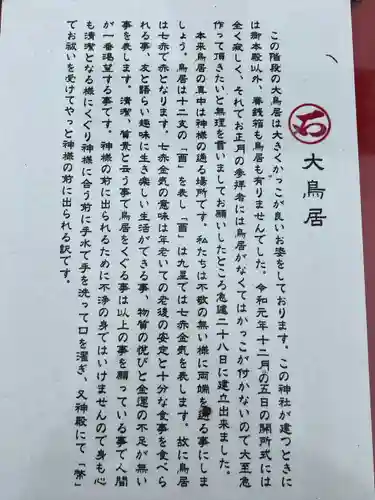 石
大鳥居
この階段の大鳥居は大きくかっこが良いお姿をしております。この神社が建つときに
は御本殿以外、賽銭箱も鳥居も有りませんでした。令和元年十二月の五日の開所式には
全く寂しく、それでお正月の参拝者には鳥居がなくてはかっこが付かないので大至急
作って頂きたいと無理を言いましてお願いしたところ急遽二十八日に建立出来ました。
本来鳥居の真中は神様の通る場所です。私たちは不敬の無い様に両端を通る事にしま
しょう。鳥居は十二支の「酉」を表し「酉」は九星では七赤金気を表します。故に鳥居
は七赤で赤となります。七赤金気の意味は年老いての老後の安定と十分な食事を食べら
れる事、友と語らい趣味に生き楽しい生活ができる事、物質の悦びと金運の不足が無い
事を表します。清潔、質素と云う事で鳥居をくぐる事は以上の事を願っている事で人間
が一番渇望する事です。神様の前に出られるために不浄の身ではいけませんので身も心
も清潔となる様にくぐり神様に合う前に手水で手を洗って口を濯ぎ、又神殿にて「幣」
でお祓いを受けてやっと神様の前に出られる訳です。